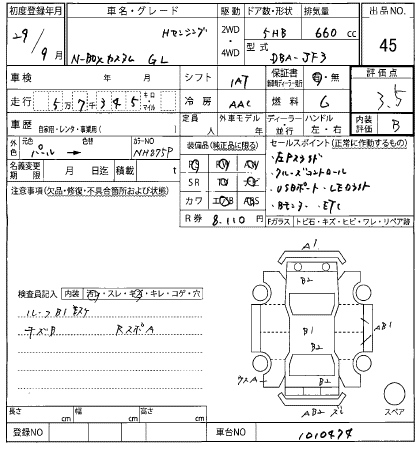 初度登録年月 車名・グレード 駆動 ドア数・形状 排気量 出品No.
29/9月 N-BOXカスタム GL Hセンシング 2WD・4WD 5HB 660cc 45
型式 DBA-JF3
車検 年 月 シフト IAT 保証書 有・無 評価点 3.5
走行 57345 キロ・マイル 冷房 AAC 燃料 G
車歴 自家用・レンタ・事業用( ) 定員 人 外車モデル ディーラー・並行 ハンドル 左・右 内装評価 B
外色 元色 パール → 色替 カラーNO NH875P 装備品(純正品に限る) セールスポイント(正常に作動するもの)
名義変更期限 月 日迄 積載 t
注意事項(欠品・修復・不具合箇所および状態) SR
・クルーズコントロール
・USBポート・LEDライト
カワ ・Bモニター・ETC
R券 8.110円 Fガラス トビ石・キズ・ヒビ・ワレ・リペア跡
A1
B2
検査員記入 内装 汚れ・スレ・キズ・キレ・コゲ・穴
ルーフB1
B1 AB1
チズB RスポA
B2
ウスA
AB2
スペア
長さ cm 幅 cm 高さ cm
登録NO 車台NO 1010474